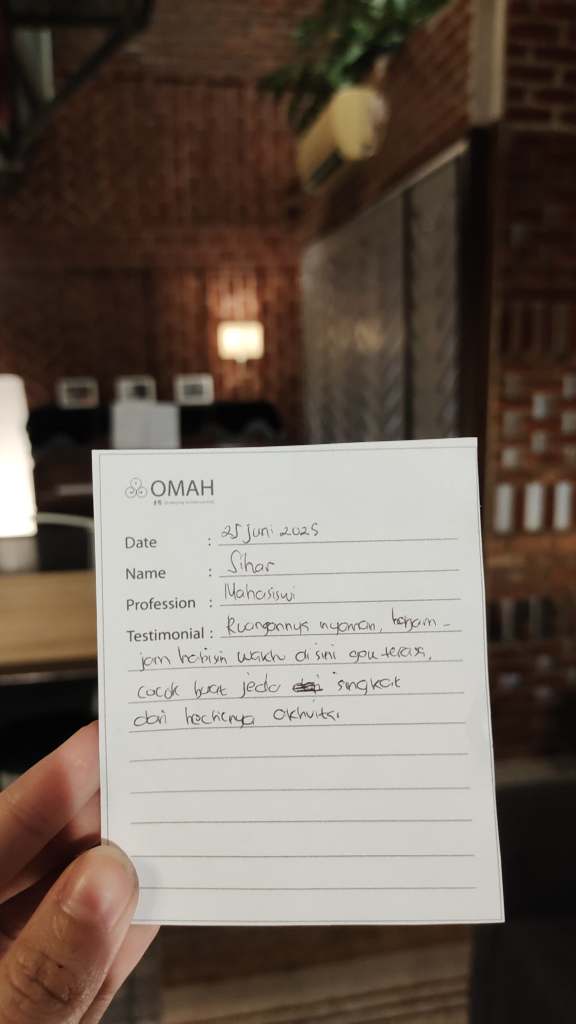 OMAH
Date : 25 Juni 2025
Name : Sihar
Profession : Mahasiswi
Testimonial : Ruangannya nyaman, berjam-
jam habisin waktu disini gau terasa,
cocok buat jeda singkat
dari hecticnya aktivitas.